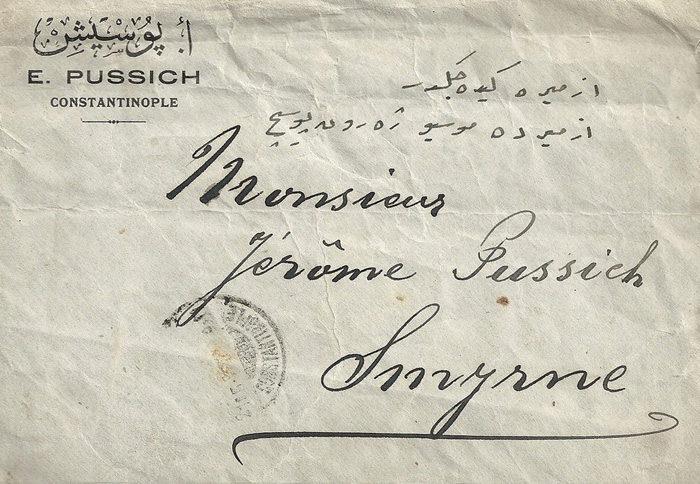 أ. پوسیش
E. PUSSICH
CONSTANTINOPLE
ازمیره كیده جكدر
ازمیرده موسیو ژه روم پوسیچ
Monsieur
Jérôme Pussich
Smyrne